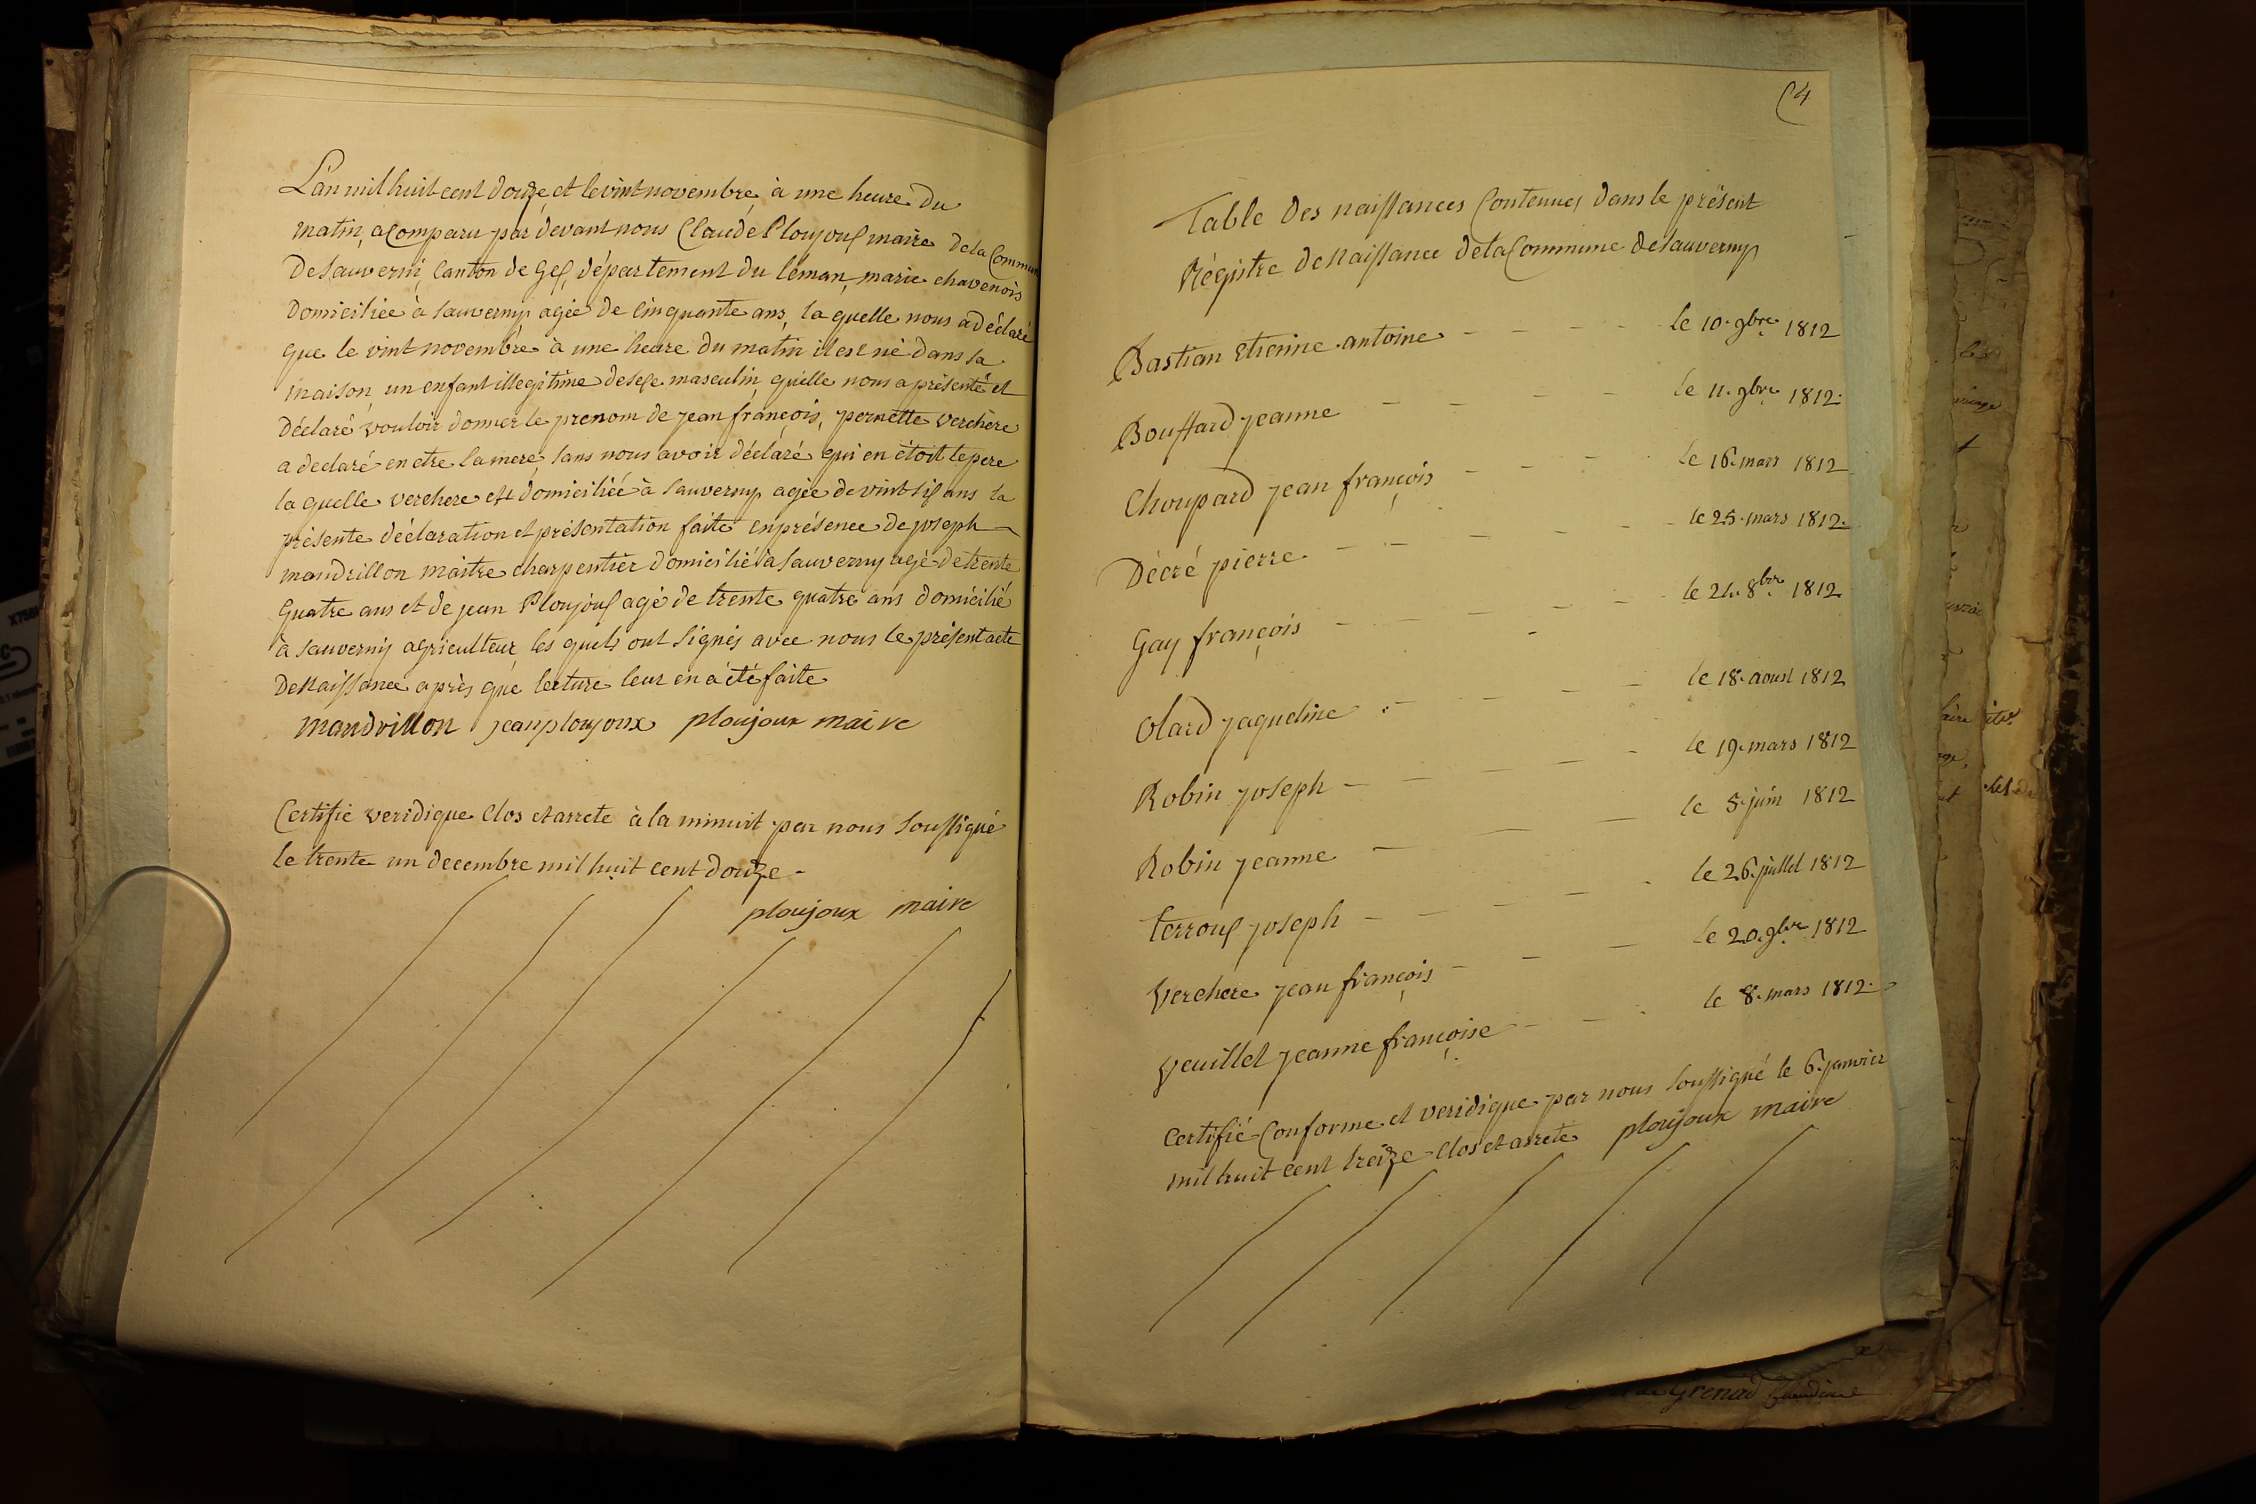 L'an mil huit cent douze et le vint novembre à une heure du
matin, a comparu par devant nous Claude Ploujoux maire de la Commune
de Sauverni, Canton de Gex, département du Léman, marie chavenois
domiciliée à Sauverny agée de Cinquante ans, la quelle nous a déclaré
que le vint novembre à une heure du matin il est né dans sa
maison, un enfant illegitime de sexe masculin, qu'elle nous a présenté et
déclaré vouloir donner le prenom de jean françois, pernette verchère
a declaré en etre la mere, sans nous avoir déclaré qui en étoit le pere
la quelle verchere est domiciliée à Sauverny agée de vint six ans la
présente déclaration et présentation faite en présence de joseph
mandrillon maitre charpentier domicilié à Sauverny agé de trente
quatre ans et de jean Ploujoux agé de trente quatre ans domicilié
à Sauverny agriculteur, les quels ont signés avec nous le présent acte
de Naissance après que lecture leur en a été faite
mandrillon jean ploujoux ploujoux maire
Certifie veridique Clos et arrete à la minuit par nous soussigné
le trente un decembre mil huit cent douze
ploujoux maire
4
Table des naissances Contenues dans le présent
Régistre de Naissance de la Commune de Sauverny
Bastian Etienne antoine le 10. 9bre 1812
Bouffard jeanne le 11. 9bre 1812.
Choupard jean françois le 16. mars 1812
Décré pierre le 25. mars 1812.
Gay françois le 24. 8bre 1812
Olard jaqueline le 18. aoust 1812
Robin joseph le 19. mars 1812
Robin jeanne le 5. juin 1812
Terroux joseph le 26. juillet 1812
Verchere jean françois le 20. 9bre 1812
Veuillet jeanne françoise le 8. mars 1812.
Certifié Conforme et veridique par nous soussigné le 6. janvier
mil huit cent treize Clos et arrete ploujoux maire
Grenad